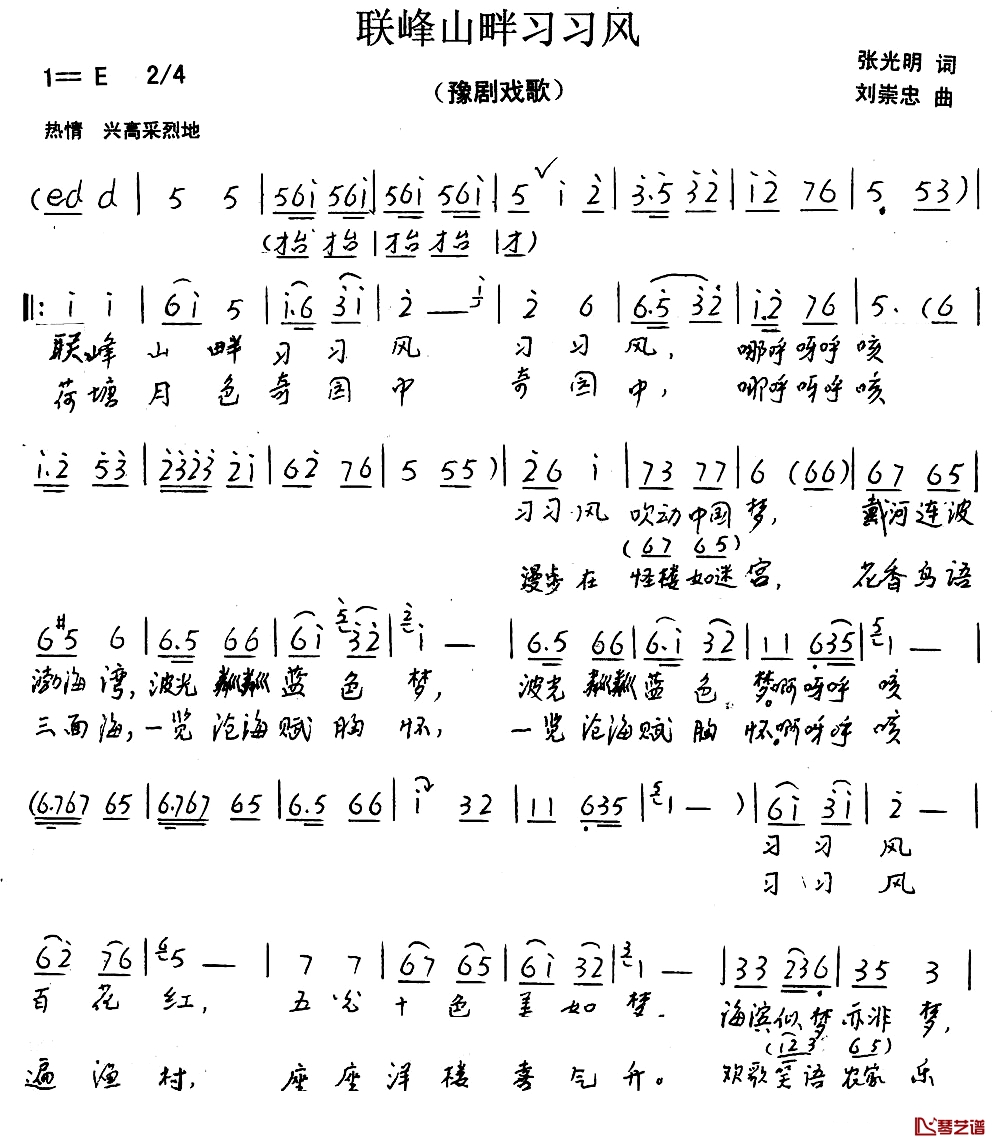 联峰山畔习习风
1= E 2/4
（豫剧戏歌）
张光明 词
刘崇忠 曲
热情 兴高采烈地
(ed d | 5 5 | 561̇ 561̇ | 561̇ 561̇ | 5 1̇ 2̇ | 3̇.5 3̇2̇ | 1̇2̇ 76 | 5. 53) |
(抬抬 | 抬抬 | 才)
‖: 1̇ 1̇ | 61̇ 5 | 1̇.6 3̇1̇ | 2̇ — | 2̇ 6 | 6.5 3̇2̇ | 1̇.2̇ 76 | 5. (6 |
联峰山畔习习风 习习风，哪呼呀呼咳
荷塘月色奇园中 奇园中，哪呼呀呼咳
1̇.2̇ 5̇3̇ | 2̇3̇2̇3̇ 2̇1̇ | 62̇ 76 | 5 55) | 2̇6 1̇ | 73 77 | 6 (66) | 67 65 |
习习风 吹动中国梦，戴河连波
(67 65)
漫步在 怪楼如迷宫，花香鸟语
6#5 6 | 6.5 66 | 61̇ 3̇2̇ | 1̇ — | 6.5 66 | 6.1̇ 32 | 11 635 | 1 — |
渤海湾，波光粼粼蓝色梦，波光粼粼蓝色梦啊呀呼咳
三面海，一览沧海赋胸怀，一览沧海赋胸怀啊呀呼咳
(6.767 65 | 6.767 65 | 6.5 66 | 1̇ 32 | 11 635 | 1 — ) | 61̇ 31̇ | 2̇ — |
习习风
习习风
62̇ 76 | 5 — | 7 7 | 67 65 | 61̇ 32 | 1 — | 33 236 | 35 3 |
百花红，五光十色美如梦 海滨似梦亦非梦，
(123 65)
遍渔村，座座洋楼喜气升。欢歌笑语农家乐
琴艺谱